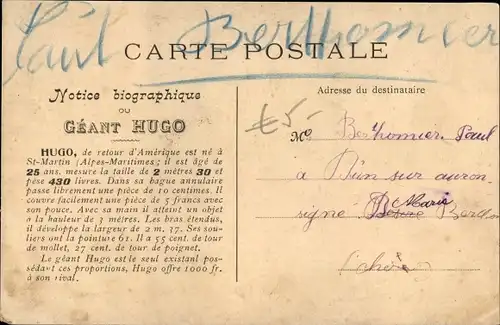 Paul Berthomier
CARTE POSTALE
Notice biographique
OU
GÉANT HUGO
HUGO, de retour d'Amérique est né à
St-Martin (Alpes-Maritimes; il est âgé de
25 ans, mesure la taille de 2 mètres 30 et
pèse 430 livres. Dans sa bague annulaire
passe librement une pièce de 10 centimes. Il
couvre facilement une pièce de 5 francs avec
son pouce. Avec sa main il atteint un objet
à la hauleur de 3 mètres. Les bras étendus,
il développe la largeur de 2 m. 37. Ses sou-
liers ont la pointure 61. Il a 55 cent. de tour
de mollet, 27 cent. de tour de poignet.
Le géant Hugo est le seul existant pos-
sédant ces proportions, Hugo offre 1000 fr.
à son rival.
Adresse du destinataire
£5-
M Berthomier Paul
a Dun sur auron
signe Marie
cher